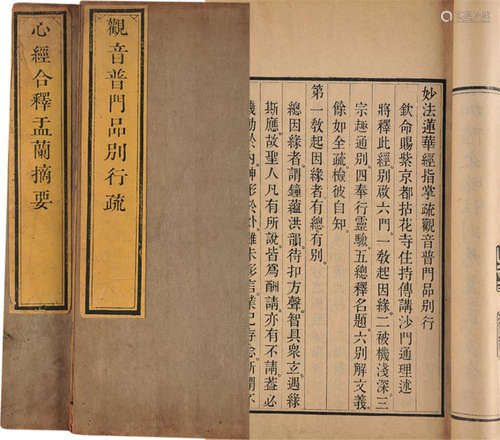 心經合釋盂蘭摘要
觀音普門品別行疏
妙法蓮華經指掌疏觀音普門品別行
欽命賜紫京都拈花寺住持傳講沙門通理述
將釋此經別啟六門一教起因緣二被機淺深三
宗趣通別四奉行靈驗五總釋名題六別解文義
餘如全疏檢彼自知
第一教起因緣者有總有別
總因緣者謂鐘蘊洪韻待扣方聲智具衆玄遇緣
斯應故聖人凡有所說皆爲酬請亦有不請蓋必
機動於內神形於外雖未形言業已存